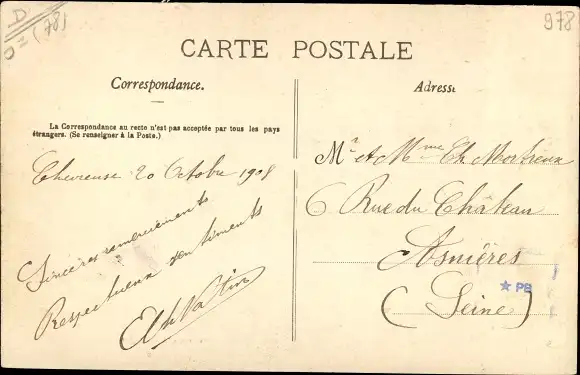 (78)
978
CARTE POSTALE
Correspondance.
La Correspondance au recto n'est pas acceptée par tous les pays
étrangers. (Se renseigner à la Poste.)
Chevreuse 20 Octobre 1908
Sincères remerciements
Respectueux sentiments
Adresse
Mr et Mme Ch.
6 Rue du Château
Asnières
(Seine)
PB